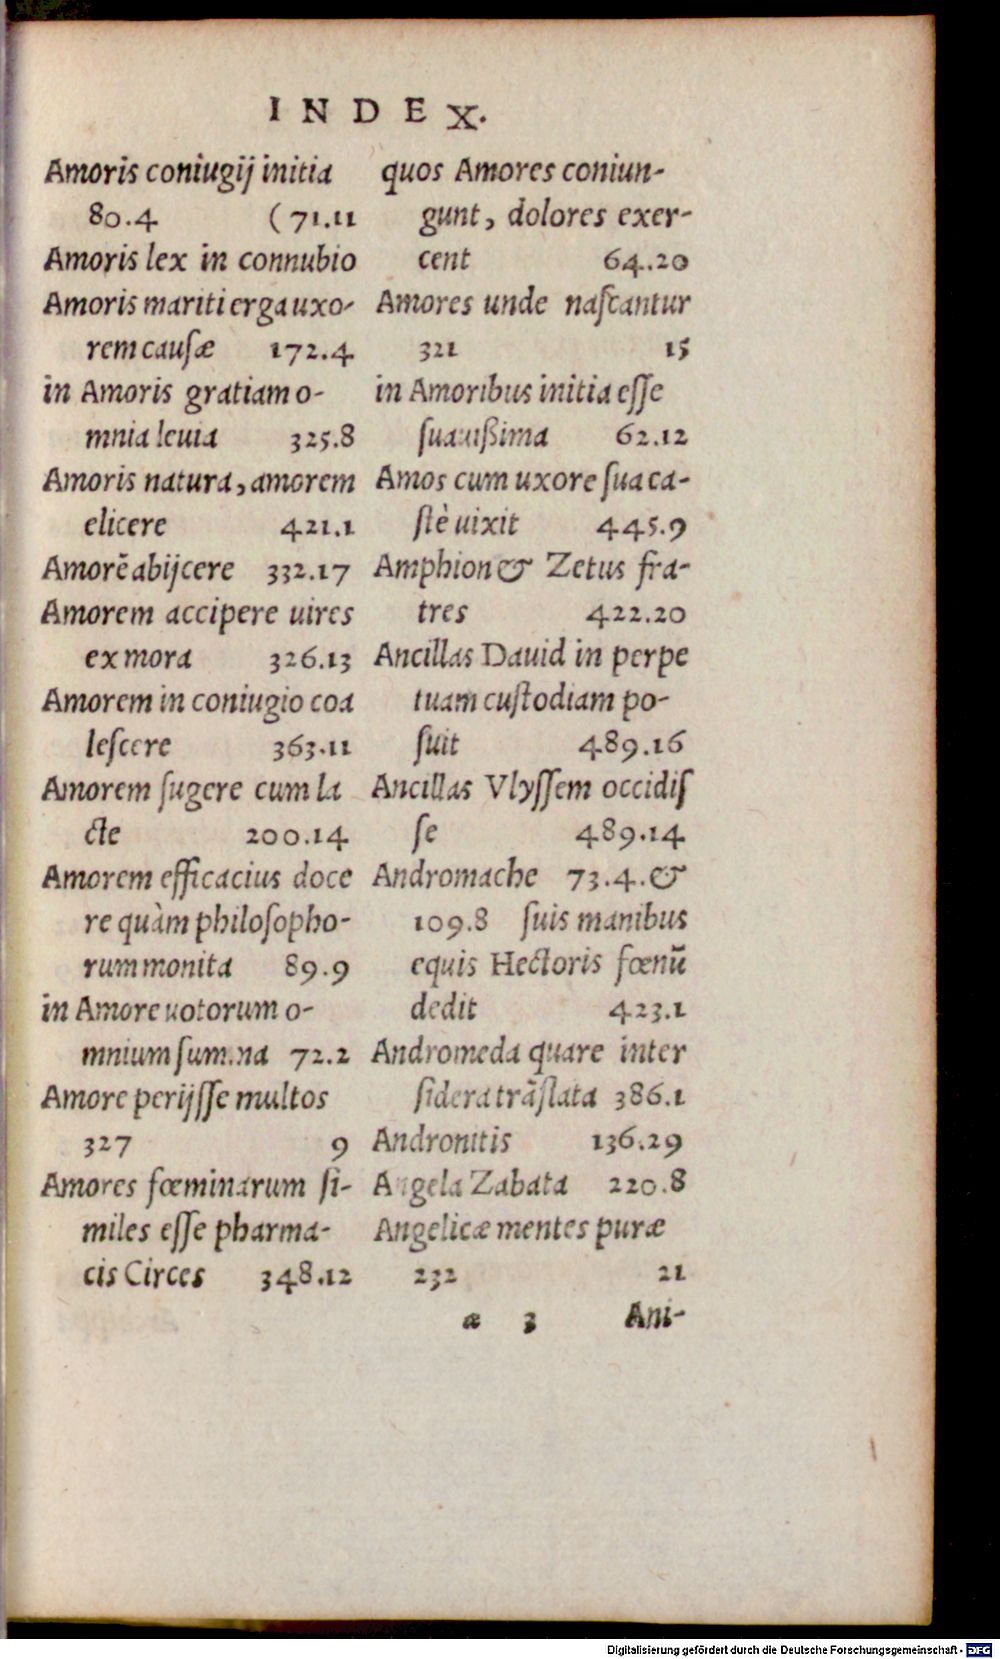 INDEX.
Amoris coniugij initia
80.4 (71.11
Amoris lex in connubio
Amoris mariti erga uxo-
rem causæ 172.4
in Amoris gratiam o-
mnia leuia 325.8
Amoris natura, amorem
elicere 421.1
Amorẽ abijcere 332.17
Amorem accipere uires
ex mora 326.13
Amorem in coniugio coa
lescere 363.11
Amorem sugere cum la
cte 200.14
Amorem efficacius doce
re quàm philosopho-
rum monita 89.9
in Amore uotorum o-
mnium summa 72.2
Amore perijsse multos
327 9
Amores fœminarum si-
miles esse pharma-
cis Circes 348.12
quos Amores coniun-
gunt, dolores exer-
cent 64.20
Amores unde nascantur
321 15
in Amoribus initia esse
suauißima 62.12
Amos cum uxore sua ca-
stè uixit 445.9
Amphion & Zetus fra-
tres 422.20
Ancillas Dauid in perpe
tuam custodiam po-
suit 489.16
Ancillas Vlyssem occidis
se 489.14
Andromache 73.4.&
109.8 suis manibus
equis Hectoris fœnũ
dedit 423.1
Andromeda quare inter
sidera trãslata 386.1
Andronitis 136.29
Angela Zabata 220.8
Angelicæ mentes puræ
232 21
a 3 Ani-
Digitalisierung gefördert durch die Deutsche Forschungsgemeinschaft - DFG